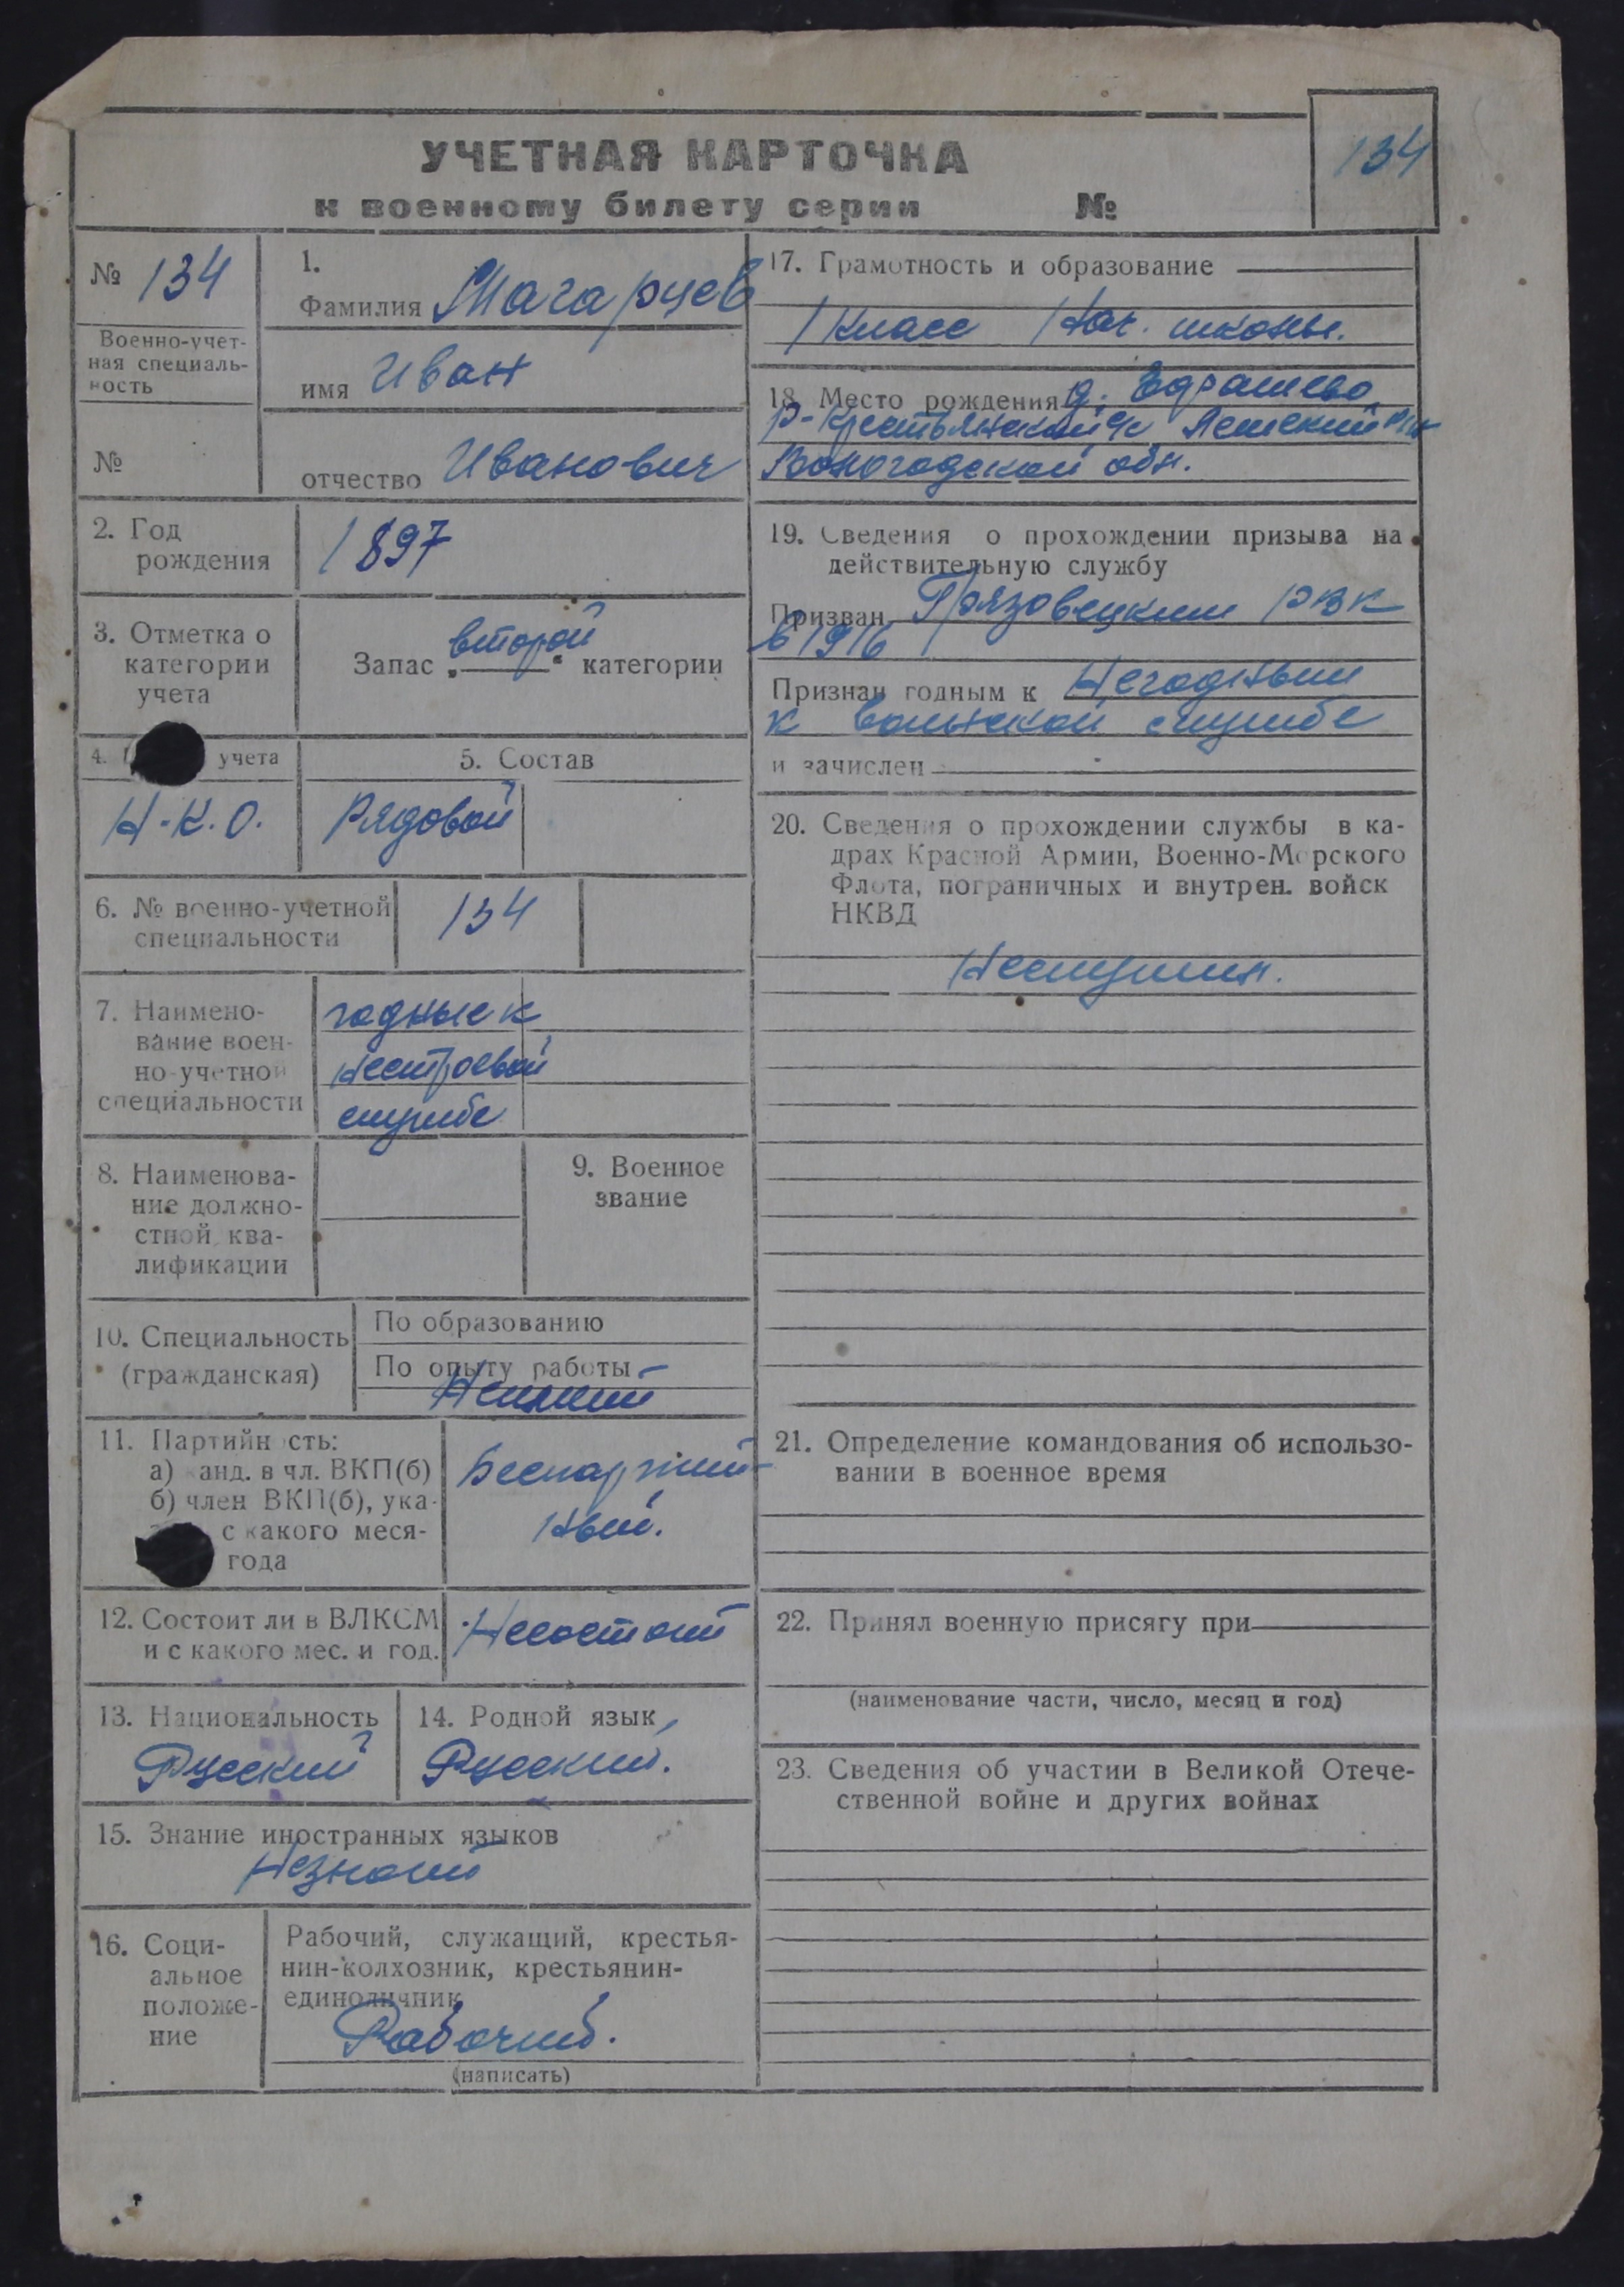 134
УЧЕТНАЯ КАРТОЧКА
к военному билету серии №
№ 134
Военно-учет-
ная специаль-
ность
№
1.
Фамилия Магарцев
имя Иван
отчество Иванович
2. Год
рождения
1897
3. Отметка о
категории
учета
Запас „второй“ категории
4. учета
Н.К.О.
5. Состав
Рядовой
6. № военно-учетной
специальности
134
7. Наимено-
вание воен-
но-учетной
специальности
годные к
нестроевой
службе
8. Наименова-
ние должно-
стной ква-
лификации
9. Военное
звание
10. Специальность
(гражданская)
По образованию
По опыту работы
11. Партийн сть:
а) анд. в чл. ВКП(б)
б) член ВКП(б), ука-
с какого меся-
года
Беспартий-
ный.
12. Состоит ли в ВЛКСМ
и с какого мес. и год.
Несостоит
13. Национальность
Русский
14. Родной язык
Русский.
15. Знание иностранных языков
Незнает
16. Соци-
альное
положе-
ние
Рабочий, служащий, крестья-
нин-колхозник, крестьянин-
единоличник
Рабочий.
(написать)
17. Грамотность и образование
1 класс Нач. школы.
18. Место рождения д.
Вологодской обл.
19. Сведения о прохождении призыва на
действительную службу
Призван Грязовецким РВК
в 1916
Признан годным к Негодным
к воинской службе
и зачислен
20. Сведения о прохождении службы в ка-
драх Красной Армии, Военно-Морского
Флота, пограничных и внутрен. войск
НКВД
Неслужил.
21. Определение командования об использо-
вании в военное время
22. Принял военную присягу при
(наименование части, число, месяц и год)
23. Сведения об участии в Великой Отече-
ственной войне и других войнах